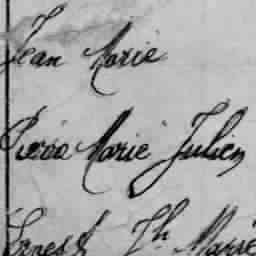 Jean Marie
Pierre Marie Julien
Ernest Jh Marie